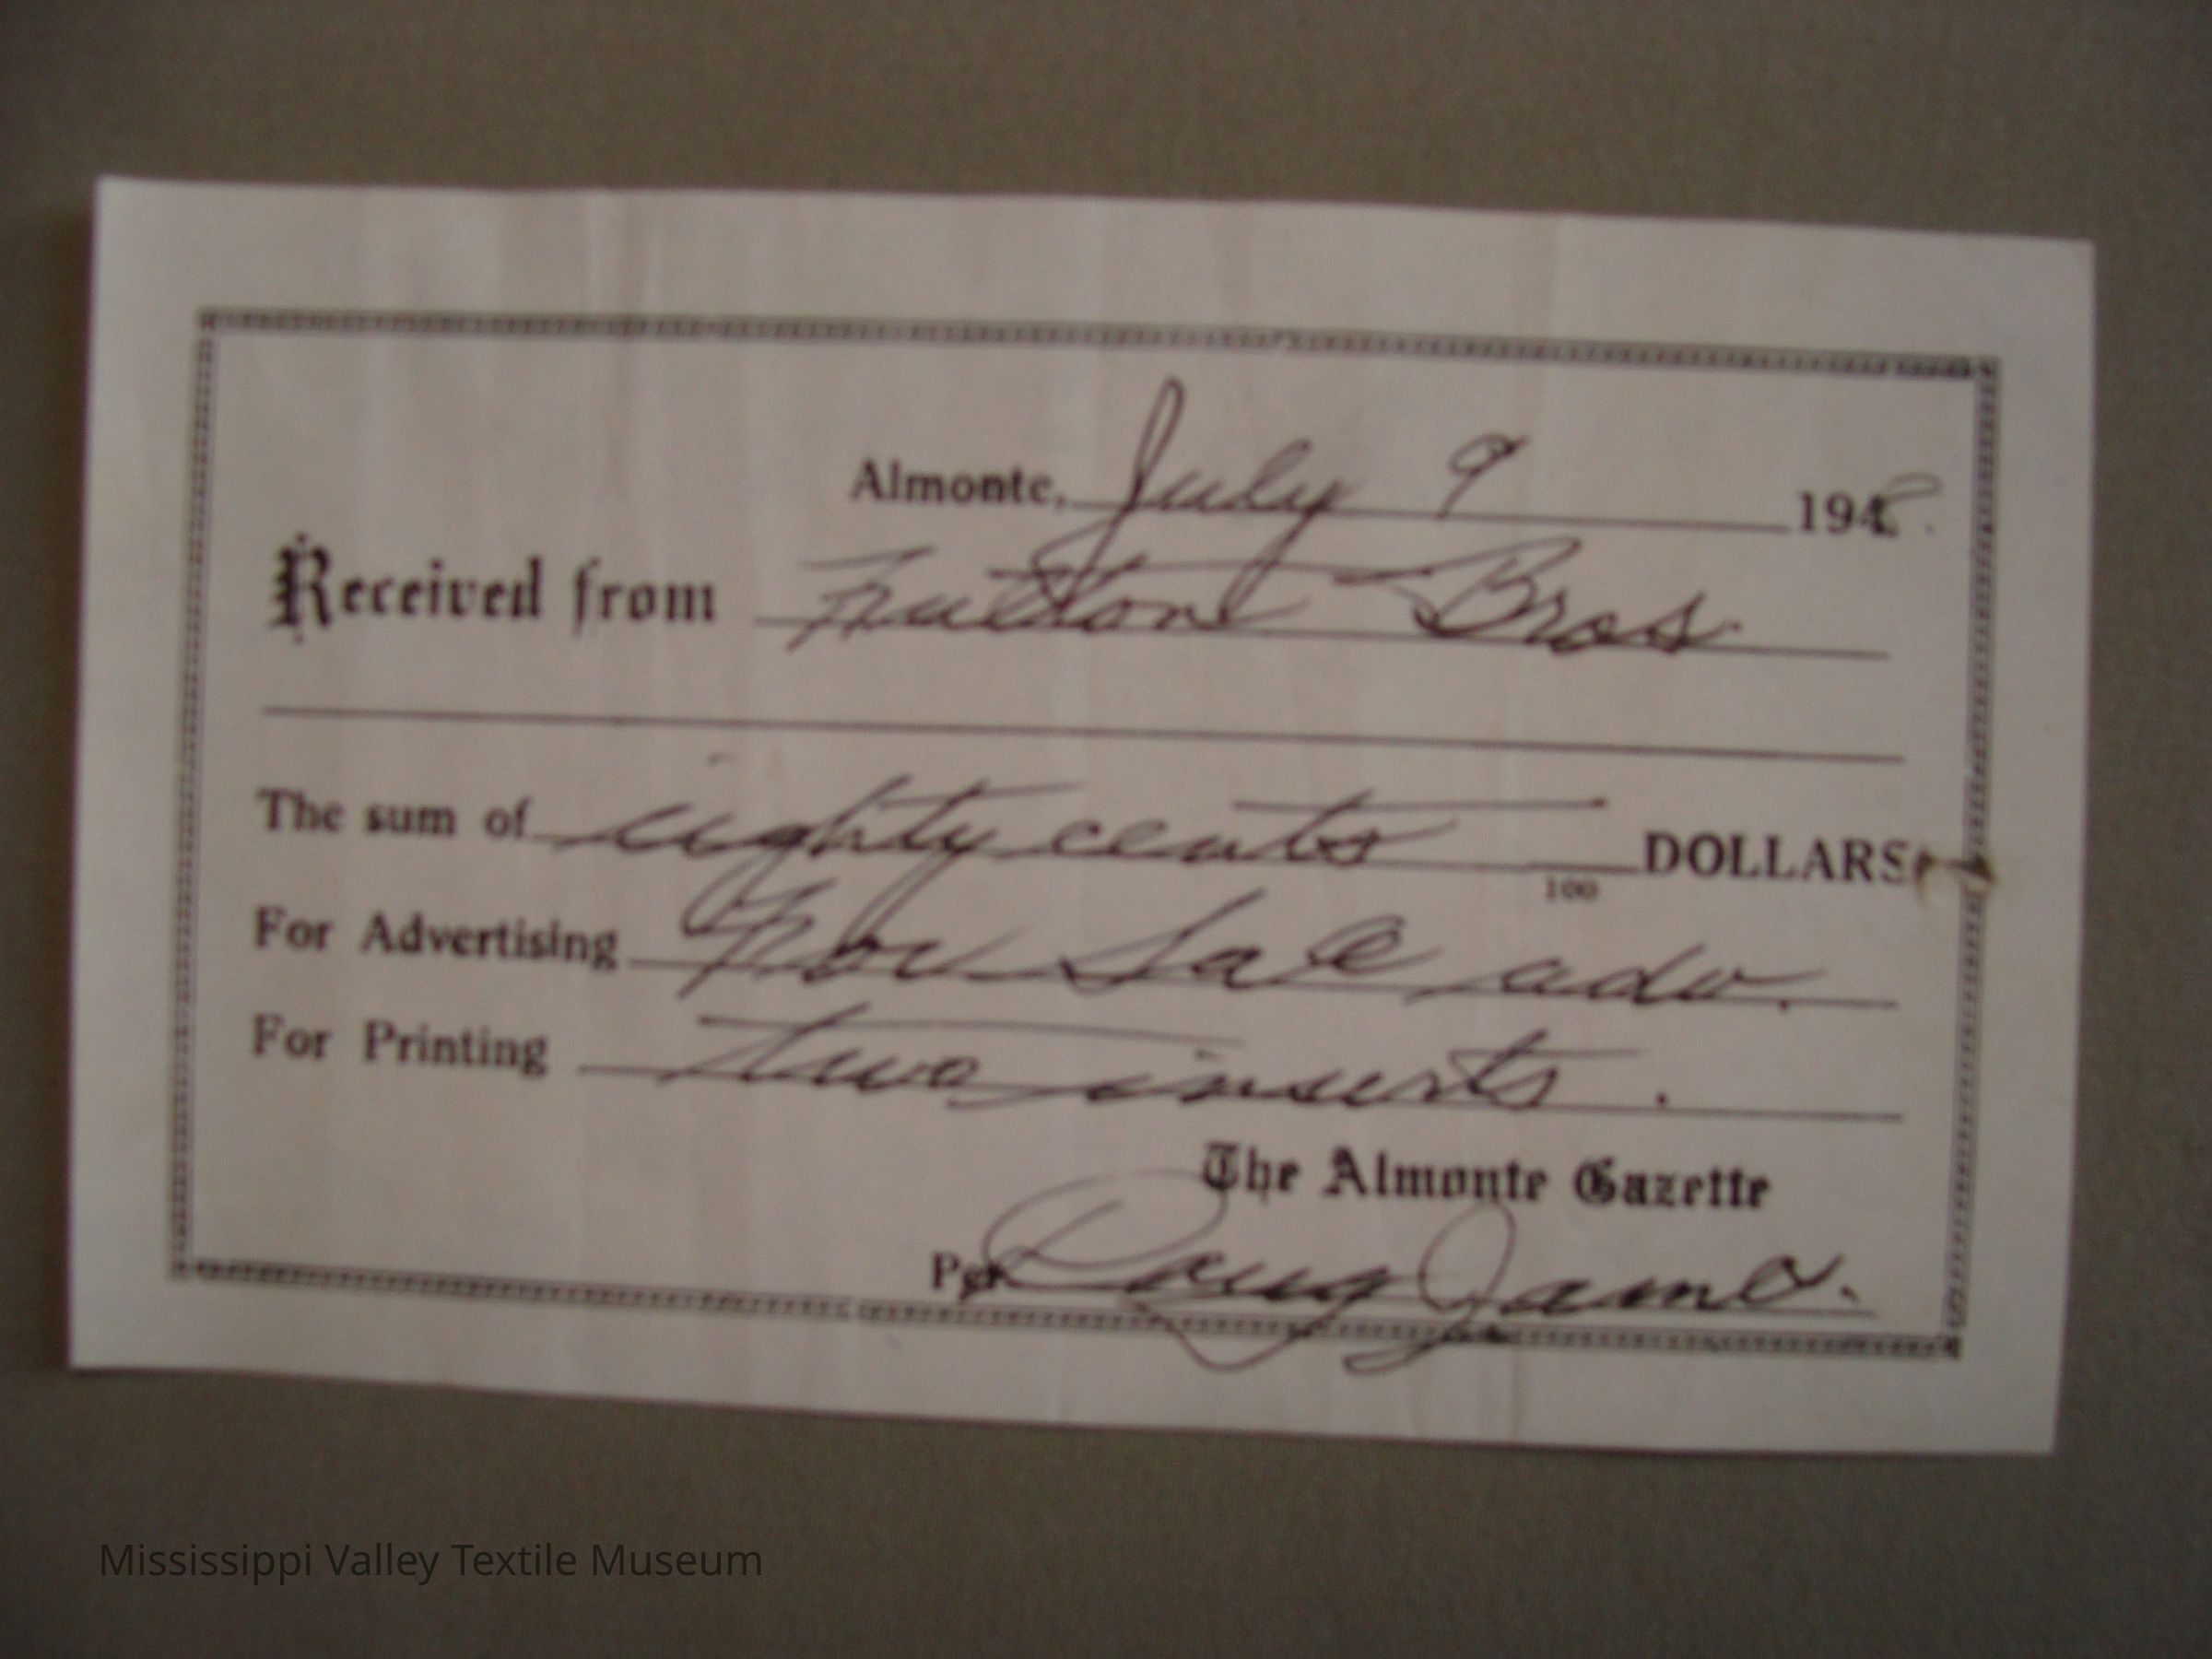 Almonte, July 9 1948.
Received from Fulton Bros.
The sum of eighty cents /100 DOLLARS
For Advertising For Sale adv.
For Printing two inserts.
The Almonte Gazette
Per Doug James.
Mississippi Valley Textile Museum